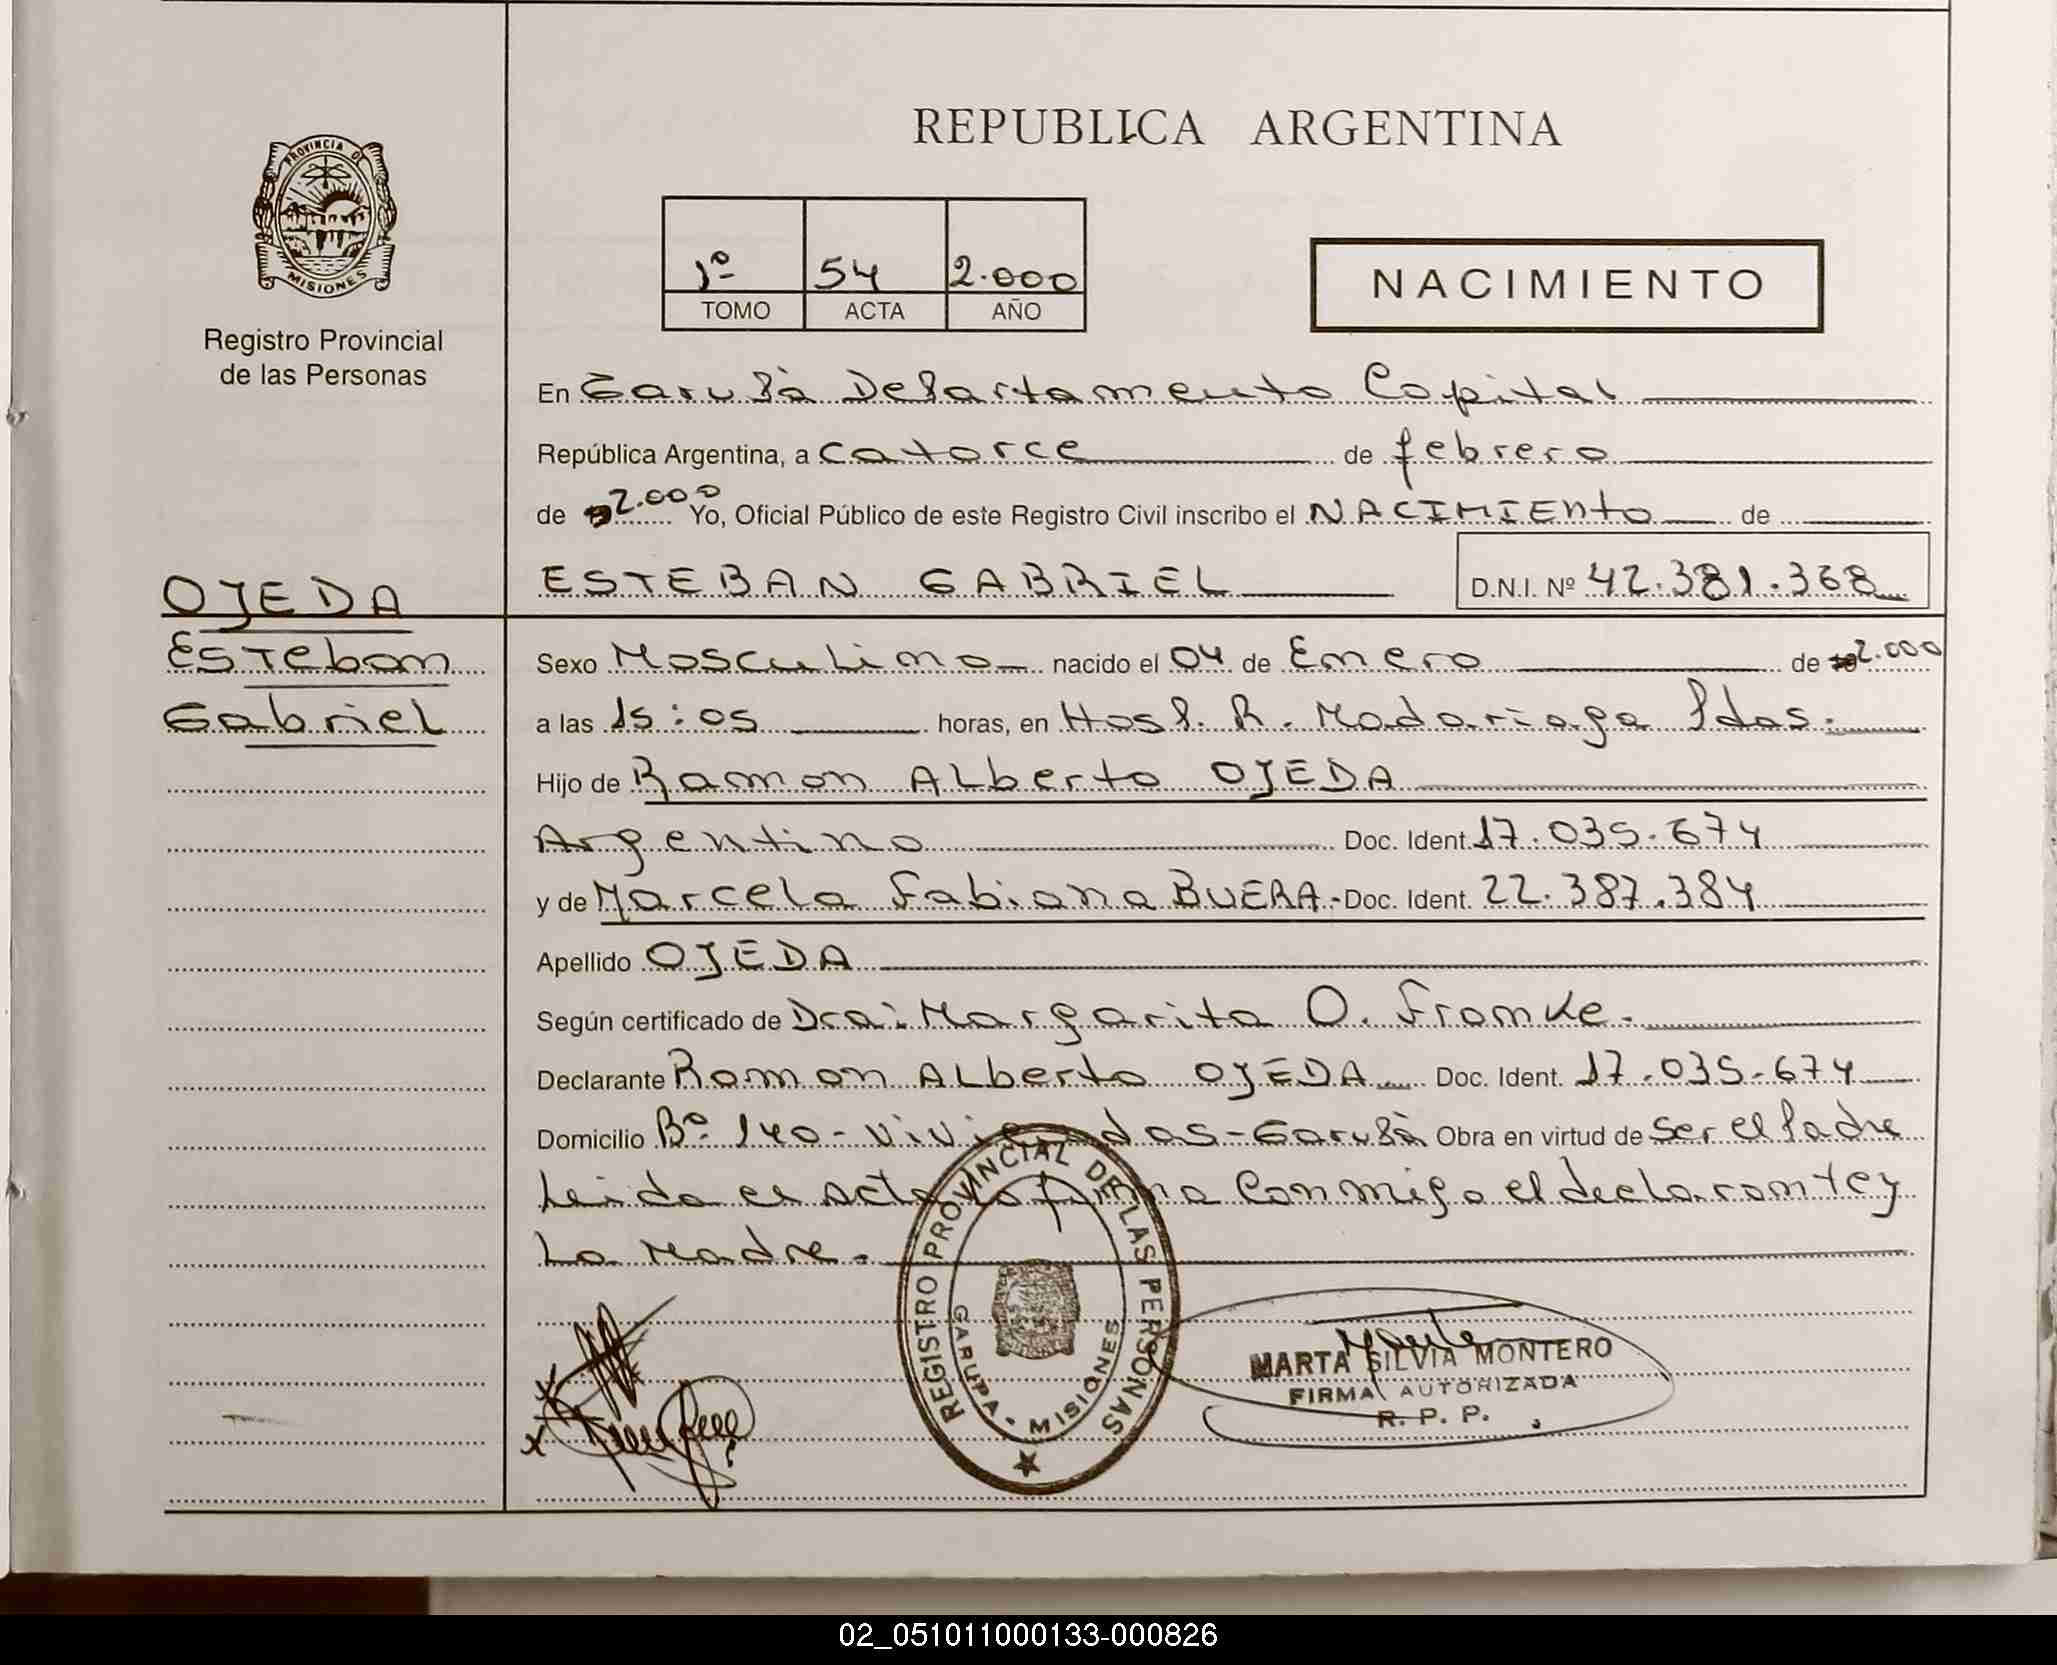 PROVINCIA DE
MISIONES
Registro Provincial
de las Personas
REPUBLICA ARGENTINA
1º 54 2.000
TOMO ACTA AÑO
NACIMIENTO
En Garupá Departamento Capital
República Argentina, a catorce de febrero
de 2.000 Yo, Oficial Público de este Registro Civil inscribo el NACIMIENto de
ESTEBAN GABRIEL D.N.I. Nº 42.381.368
OJEDA
Esteban
Gabriel
Sexo Masculino nacido el 04 de Enero de 2.000
a las 15:05 horas, en Hosp. R. Madariaga Pdas.
Hijo de Ramon Alberto OJEDA
Argentino Doc. Ident. 17.035.674
y de Marcela Fabiana BUERA.- Doc. Ident. 22.387.384
Apellido OJEDA
Según certificado de Dra: Margarita O. Fromke.
Declarante Ramon Alberto OJEDA Doc. Ident. 17.035.674
Domicilio Bº 140 - Viviendas - Garupá Obra en virtud de ser el Padre
Leida el acta la firma conmigo el declarante y
la Madre.
REGISTRO PROVINCIAL DE LAS PERSONAS
GARUPA - MISIONES
MARTA SILVIA MONTERO
FIRMA AUTORIZADA
R. P. P.
02_051011000133-000826